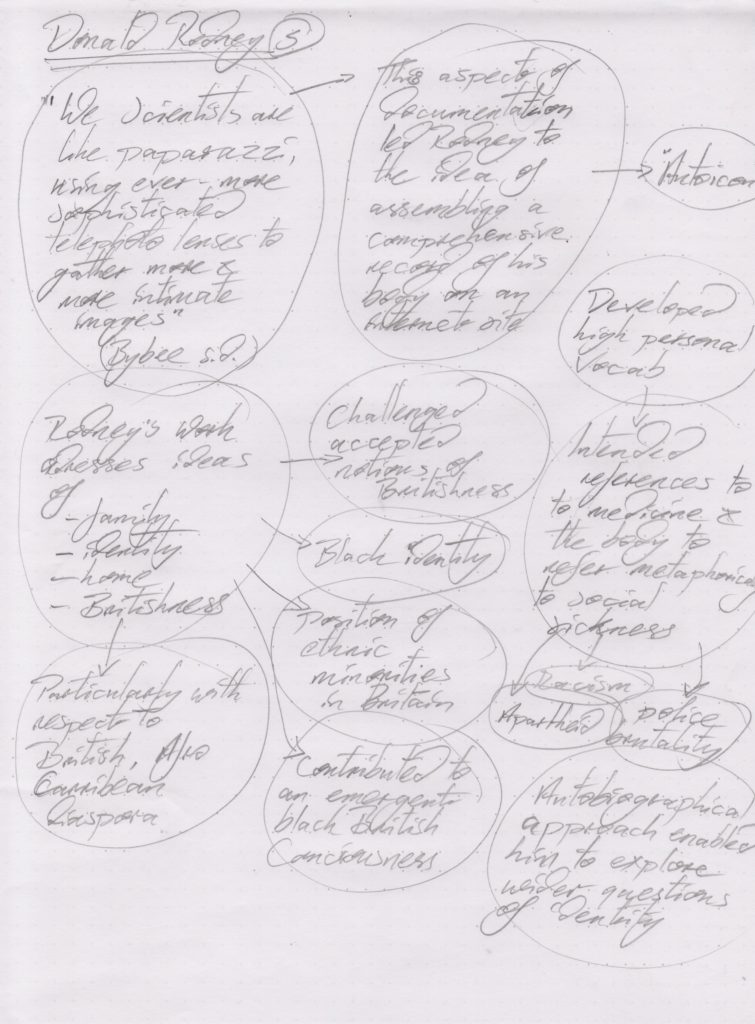 Donald Rodney 5
"We scientists are
like paparazzi,
using ever-more
sophisticated
telephoto lenses to
gather more &
more intimate
images"
(Bybee s.d.)
This aspects of
documentation
led Rodney to
the idea of
assembling a
comprehensive
record of his
body on an
internet site
"Autoicon
Developed
high personal
vocab
Intended
references to
to medicine &
the body to
refer metaphorical
to social
sickness
Racism
Apartheid
police
brutality
Rodney's work
adresses ideas
of
- family
- identity
- home
- Britishness
Challenged
accepted
notions of
Britishness
Black identity
Position of
ethnic
minorities
in Britain
Contributed to
an emergent
black British
Conciousness
Particularly with
respect to
British, Afro
Carribean
Diaspora
Autobiographical
approach enabled
him to explore
wider questions
of identity